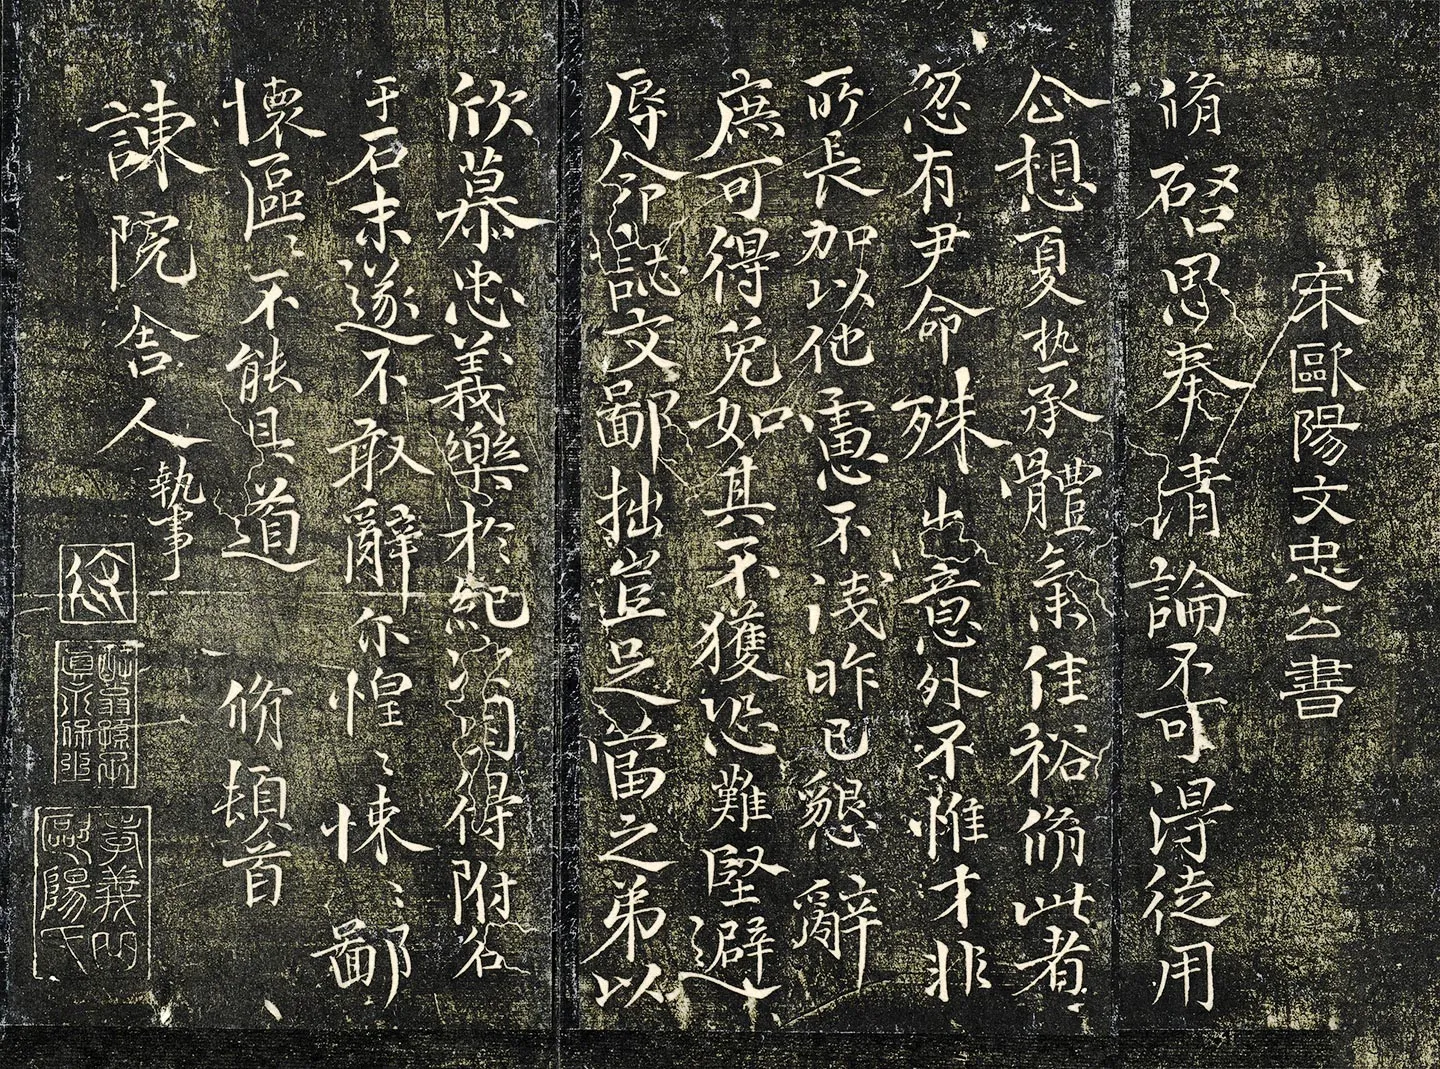 宋歐陽文忠公書
脩啓思奉清論不可得徒用
企想夏熱承體氣佳裕脩此者
忽有尹命殊出意外不惟才非
所長加以他慮不淺昨已懇辭
庶可得免如其不獲恐難堅避
辱命即日誌文鄙拙豈足當之弟以
欣慕忠義樂於紀次自得附名
于石末遂不敢辭尔惶〻悚〻鄙
懷區〻不能具道 脩頓首
諫院舍人執事
孝義門
歐陽氏